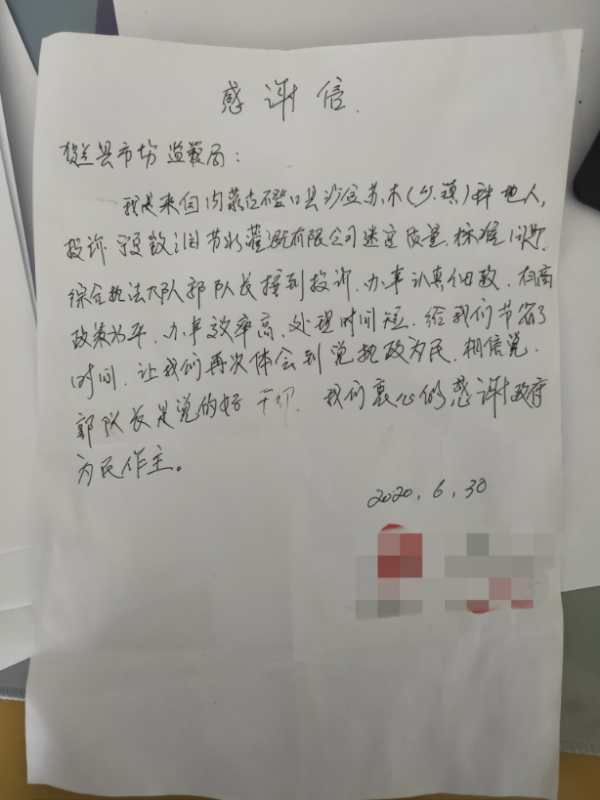 感谢信
贺兰县市场监管局：
我是来自内蒙古磴口县沙金苏木(乡.镇)种地人,
投诉 节水灌溉有限公司 质量.标准问题.
综合执法大队郭队长接到投诉.办事认真细致.
政策水平.办事效率高.处理时间短.给我们节省了
时间.让我们再次体会到党执政为民.相信党.
郭队长是党的好干部.我们衷心的感谢政府
为民作主。
2020.6.30